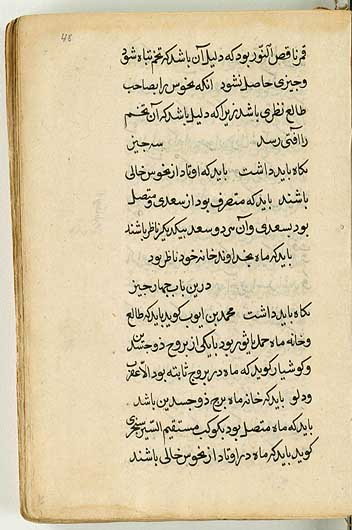 48
قمر ناقص النور بود که دلیل آن باشد که تخم تباه شود
و چیزی حاصل نشود آنکه نحوس را بصاحب
طالع نظری باشد زیرا که دلیل باشد که آن تخم
را آفتی رسد سه چیز
نکاه باید داشت باید که اوتاد از نحوس خالی
باشند باید که متصرف بود از سعدی و متصل
بود بسعدی و آن هر دو سعد بیکدیکر ناظر باشند
باید که ماه بخداوند خانه خود ناظر بود
درین باب چهار چیز
نکاه باید داشت محمد بن ایوب کوید باید که طالع
و خانه ماه حمل یا ثور بود یا یکی از بروج ذوجسدین
و کوشیار کوید که ماه در بروج ثابته بود الا عقرب
و دلو باید که خانه ماه برج ذوجسدین باشد
باید که ماه متصل بود بکوکب مستقیم السیر سنجری
کوید باید که ماه در اوتاد از نحوس خالی باشند